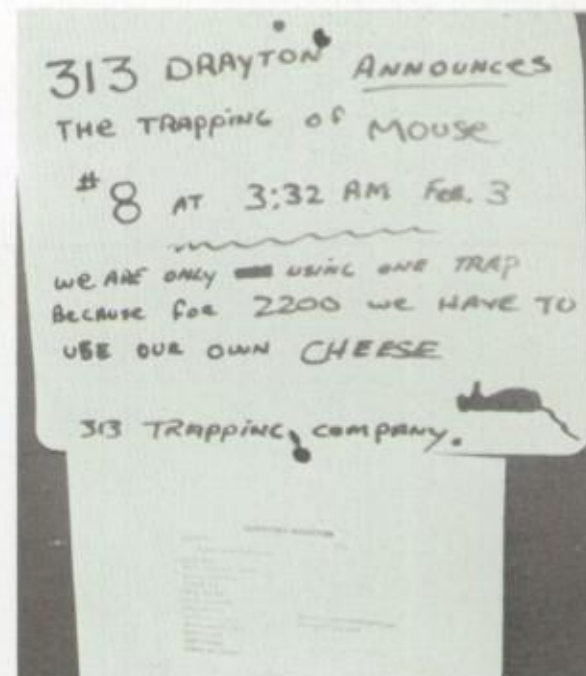 313 DRAYTON ANNOUNCES
THE TRAPPING OF MOUSE
#8 AT 3:32 AM FEB. 3
WE ARE ONLY USING ONE TRAP
BECAUSE FOR 2200 WE HAVE TO
USE OUR OWN CHEESE
313 TRAPPING COMPANY.